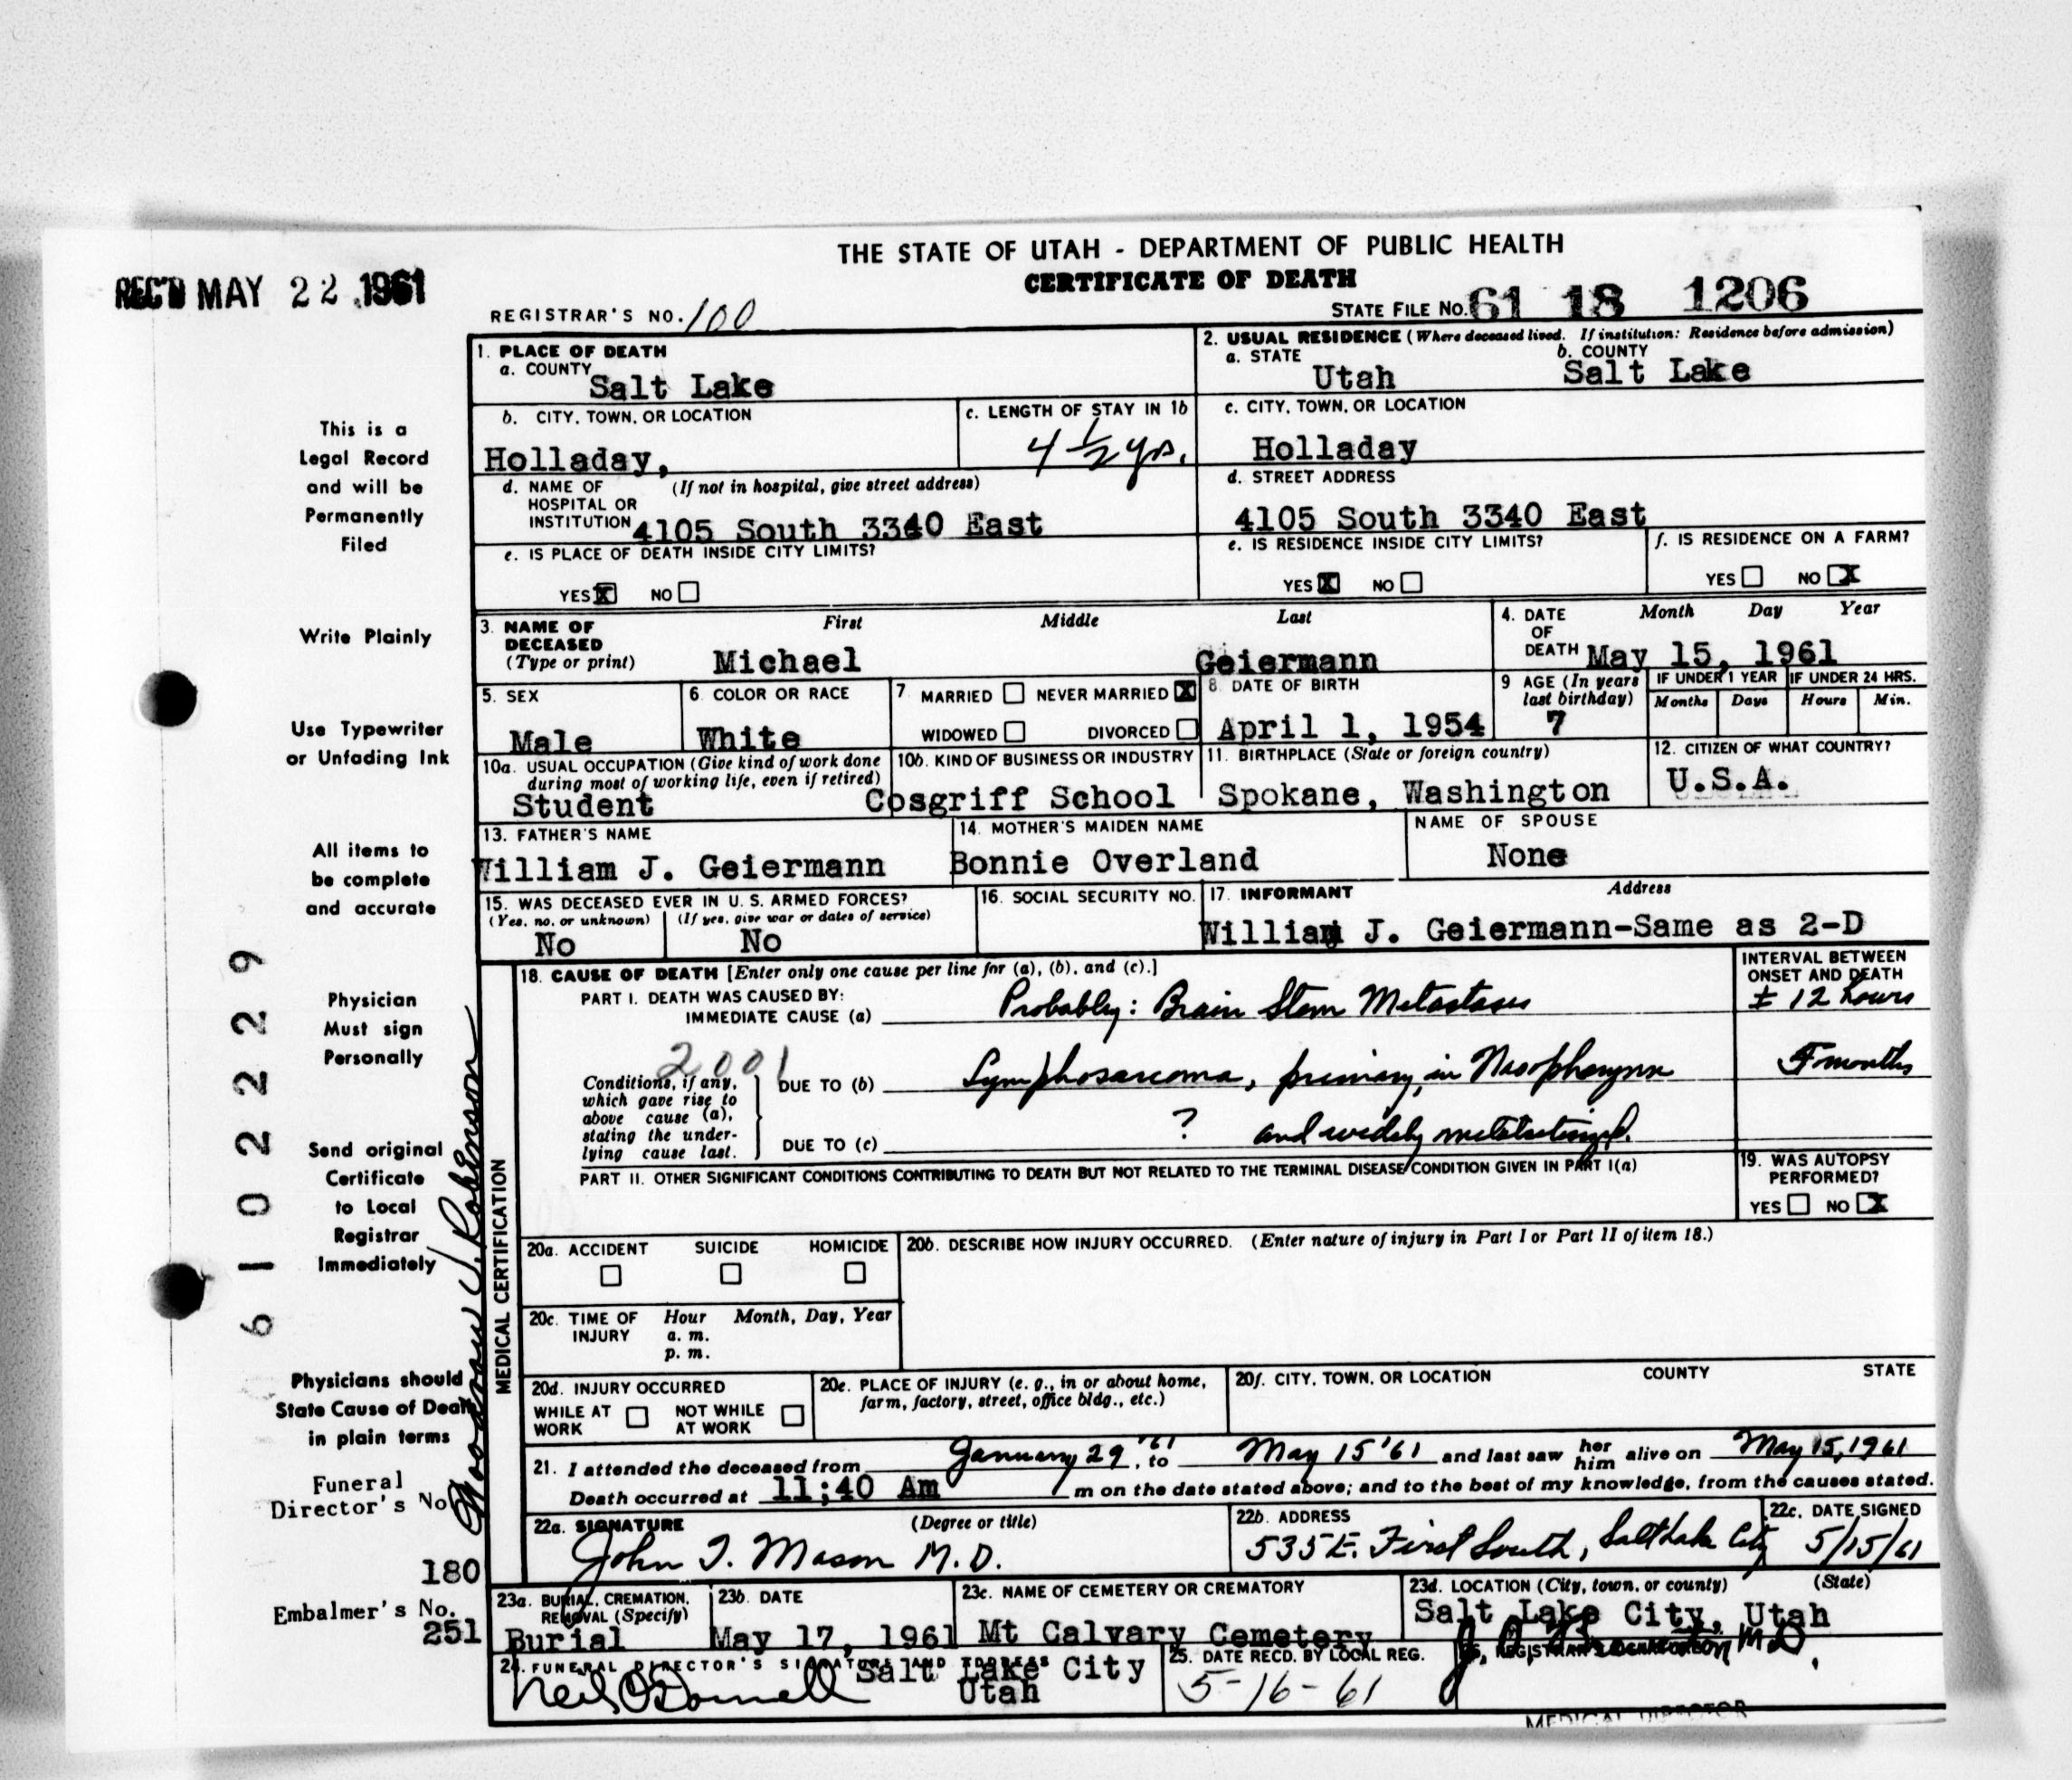 THE STATE OF UTAH - DEPARTMENT OF PUBLIC HEALTH
CERTIFICATE OF DEATH
REC'D MAY 22 1961
REGISTRAR'S NO. 100
STATE FILE NO. 61 18 1206
1. PLACE OF DEATH
a. COUNTY
Salt Lake
2. USUAL RESIDENCE (Where deceased lived. If institution: Residence before admission)
a. STATE b. COUNTY
Utah Salt Lake
b. CITY, TOWN, OR LOCATION
Holladay,
c. LENGTH OF STAY IN 1b
4 1/2 yrs.
c. CITY, TOWN, OR LOCATION
Holladay
d. NAME OF (If not in hospital, give street address)
HOSPITAL OR
INSTITUTION 4105 South 3340 East
d. STREET ADDRESS
4105 South 3340 East
e. IS PLACE OF DEATH INSIDE CITY LIMITS?
YES X NO
e. IS RESIDENCE INSIDE CITY LIMITS?
YES X NO
f. IS RESIDENCE ON A FARM?
YES NO X
3. NAME OF First Middle Last
DECEASED
(Type or print) Michael Geiermann
4. DATE Month Day Year
OF
DEATH May 15, 1961
5. SEX
Male
6. COLOR OR RACE
White
7. MARRIED NEVER MARRIED X
WIDOWED DIVORCED
8. DATE OF BIRTH
April 1, 1954
9 AGE (In years
last birthday)
7
IF UNDER 1 YEAR IF UNDER 24 HRS.
Months Days Hours Min.
10a. USUAL OCCUPATION (Give kind of work done
during most of working life, even if retired)
Student
10b. KIND OF BUSINESS OR INDUSTRY
Cosgriff School
11. BIRTHPLACE (State or foreign country)
Spokane, Washington
12. CITIZEN OF WHAT COUNTRY?
U.S.A.
13. FATHER'S NAME
William J. Geiermann
14. MOTHER'S MAIDEN NAME
Bonnie Overland
NAME OF SPOUSE
None
15. WAS DECEASED EVER IN U. S. ARMED FORCES?
(Yes, no, or unknown) (If yes, give war or dates of service)
No No
16. SOCIAL SECURITY NO.
17. INFORMANT Address
William J. Geiermann-Same as 2-D
MEDICAL CERTIFICATION
18. CAUSE OF DEATH [Enter only one cause per line for (a), (b), and (c).]
INTERVAL BETWEEN
ONSET AND DEATH
PART I. DEATH WAS CAUSED BY:
IMMEDIATE CAUSE (a) Probably: Brain Stem Metastases ± 12 hours
2001
Conditions, if any,
which gave rise to
above cause (a),
stating the under-
lying cause last.
DUE TO (b) Lymphosarcoma, primary in Nasopharynx months
DUE TO (c) ? and widely metastasized.
PART II. OTHER SIGNIFICANT CONDITIONS CONTRIBUTING TO DEATH BUT NOT RELATED TO THE TERMINAL DISEASE CONDITION GIVEN IN PART I(a)
19. WAS AUTOPSY
PERFORMED?
YES NO X
20a. ACCIDENT SUICIDE HOMICIDE
20b. DESCRIBE HOW INJURY OCCURRED. (Enter nature of injury in Part I or Part II of item 18.)
20c. TIME OF Hour Month, Day, Year
INJURY a. m.
p. m.
20d. INJURY OCCURRED
WHILE AT NOT WHILE
WORK AT WORK
20e. PLACE OF INJURY (e. g., in or about home,
farm, factory, street, office bldg., etc.)
20f. CITY, TOWN, OR LOCATION COUNTY STATE
21. I attended the deceased from January 29 '61, to May 15 '61 and last saw her him alive on May 15, 1961
Death occurred at 11;40 Am m on the date stated above; and to the best of my knowledge, from the causes stated.
22a. SIGNATURE (Degree or title)
John T. Mason M.D.
22b. ADDRESS
535 E. First South, Salt Lake City
22c. DATE SIGNED
5/15/61
23a. BURIAL, CREMATION,
REMOVAL (Specify)
Burial
23b. DATE
May 17, 1961
23c. NAME OF CEMETERY OR CREMATORY
Mt Calvary Cemetery
23d. LOCATION (City, town, or county) (State)
Salt Lake City, Utah
24. FUNERAL DIRECTOR'S SIGNATURE AND ADDRESS
Neil O'Donnell Salt Lake City
Utah
25. DATE RECD. BY LOCAL REG.
5-16-61
MEDICAL DIRECTOR
This is a
Legal Record
and will be
Permanently
Filed
Write Plainly
Use Typewriter
or Unfading Ink
All items to
be complete
and accurate
Physician
Must sign
Personally
Send original
Certificate
to Local
Registrar
Immediately
Physicians should
State Cause of Death
in plain terms
Funeral
Director's No
180
Embalmer's No.
251
61022229
Woodrow J. Robinson